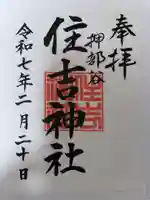 奉拝
押部谷
住吉神社
令和七年二月二十日